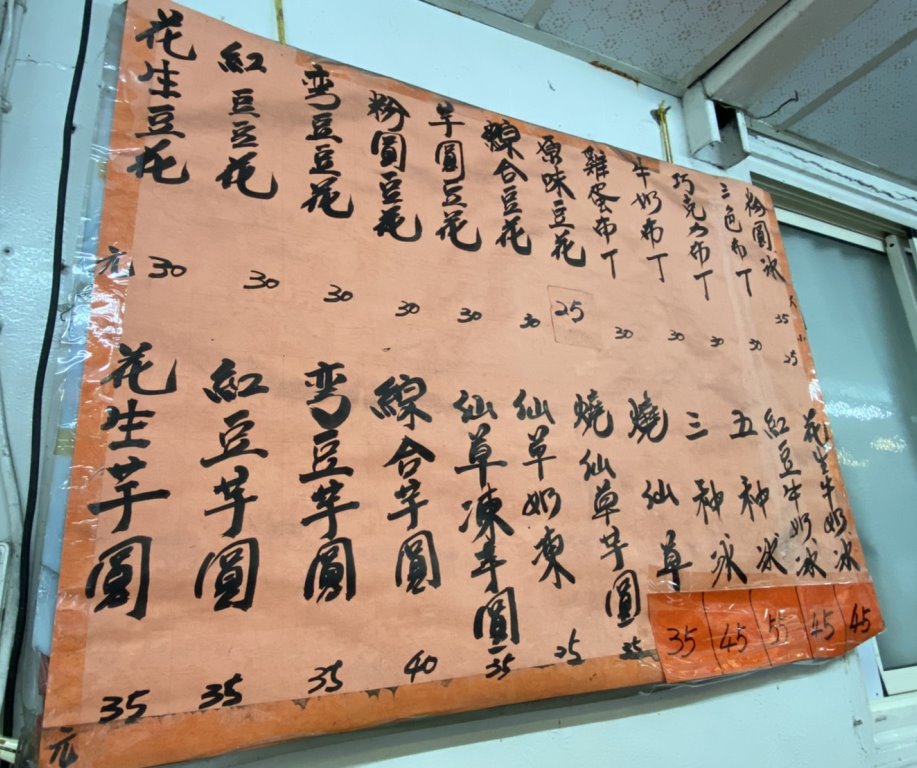 花生豆花 元30
紅豆豆花 30
弯豆豆花 30
粉圓豆花 30
芋圓豆花 30
綜合豆花 30
原味豆花 25
雞蛋布丁 30
牛奶布丁 30
巧克力布丁 30
三色布丁 30
粉圓冰 大35 小25
花生芋圓 35元
紅豆芋圓 35
弯豆芋圓 35
綜合芋圓 40
仙草凍芋圓 35
仙草奶凍 25
燒仙草芋圓 35
燒仙草 35
三神冰 45
五神冰 55
紅豆牛奶冰 45
花生牛奶冰 45